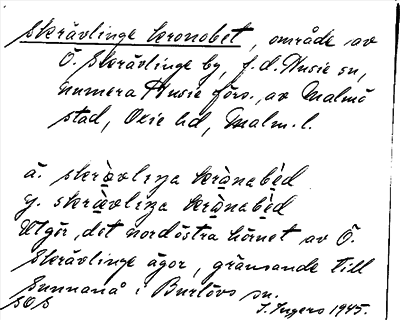 Skrävlinge kronobet, område av
Ö. Skrävlinge by, f.d. Husie sn,
numera Husie förs., av Malmö
stad, Oxie hd, Malm. l.
ä. skrävliŋa krånabèd
y. skrävliŋa krånabèd
Utgör det nordöstra hörnet av Ö.
Skrävlinge ägor, gränsande till
Sunnanå i Burlövs sn.
SOS I. Ingers 1945.